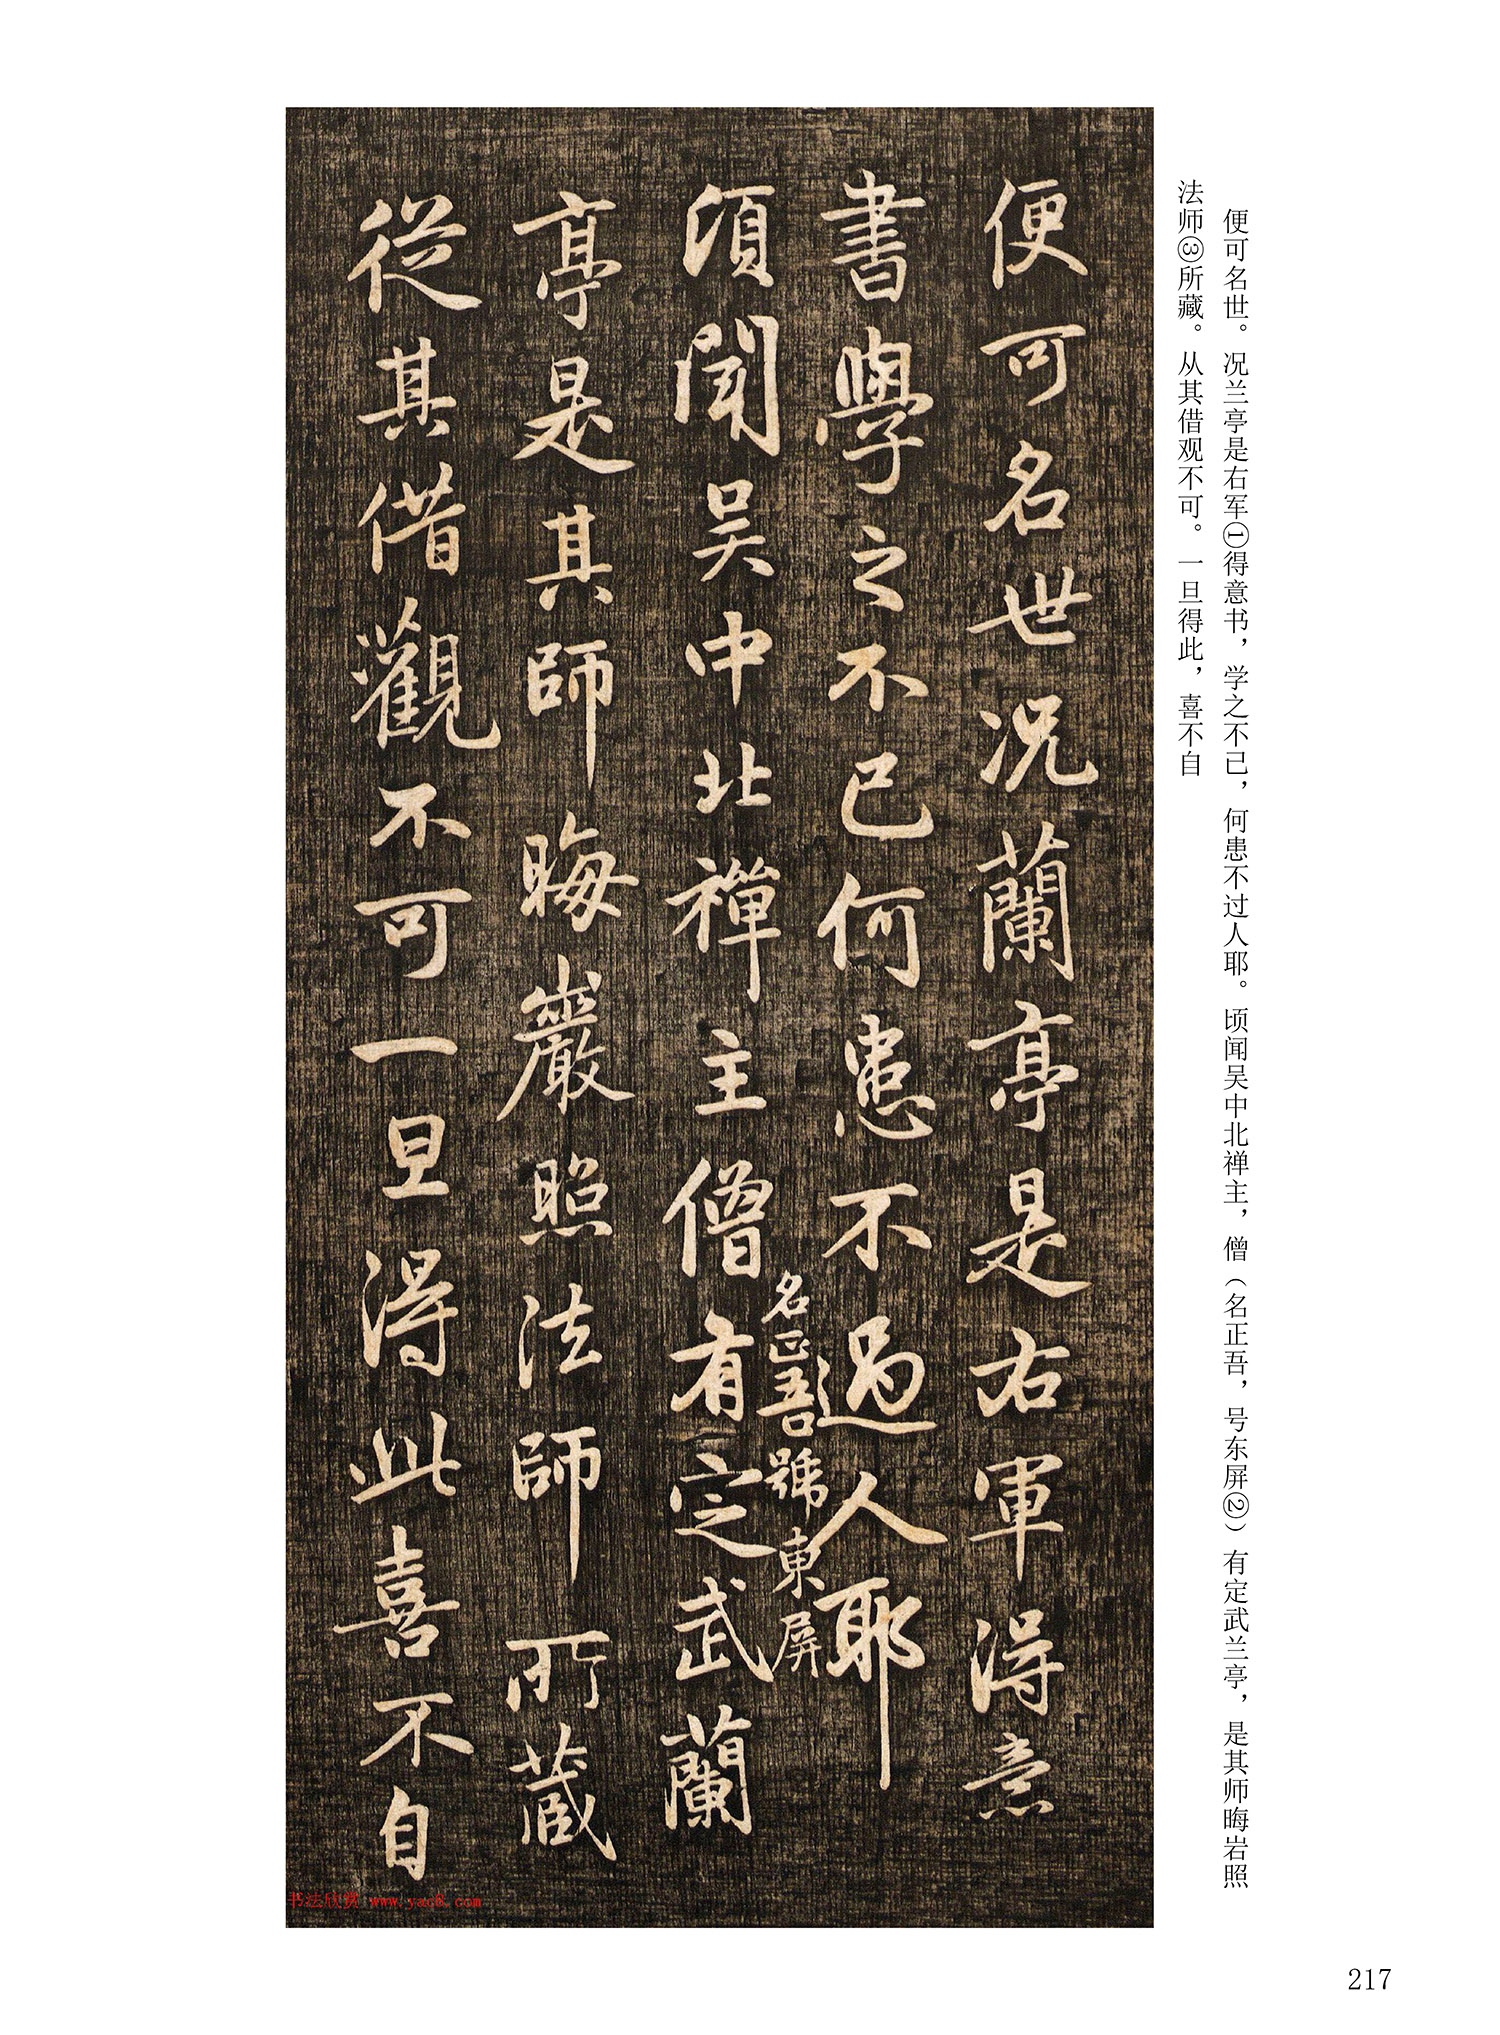 便可名世。况兰亭是右军①得意书，学之不已，何患不过人耶。顷闻吴中北禅主，僧（名正吾，号东屏②）有定武兰亭，是其师晦岩照
法师③所藏。从其借观不可。一旦得此，喜不自
便可名世況蘭亭是右軍得意
書學之不已何患不過人耶
頃聞吴中北禪主僧名正吾號東屏有定武蘭
亭是其師晦巖照法師所藏
從其借觀不可一旦得此喜不自
书法欣赏 www.yac8.com
217